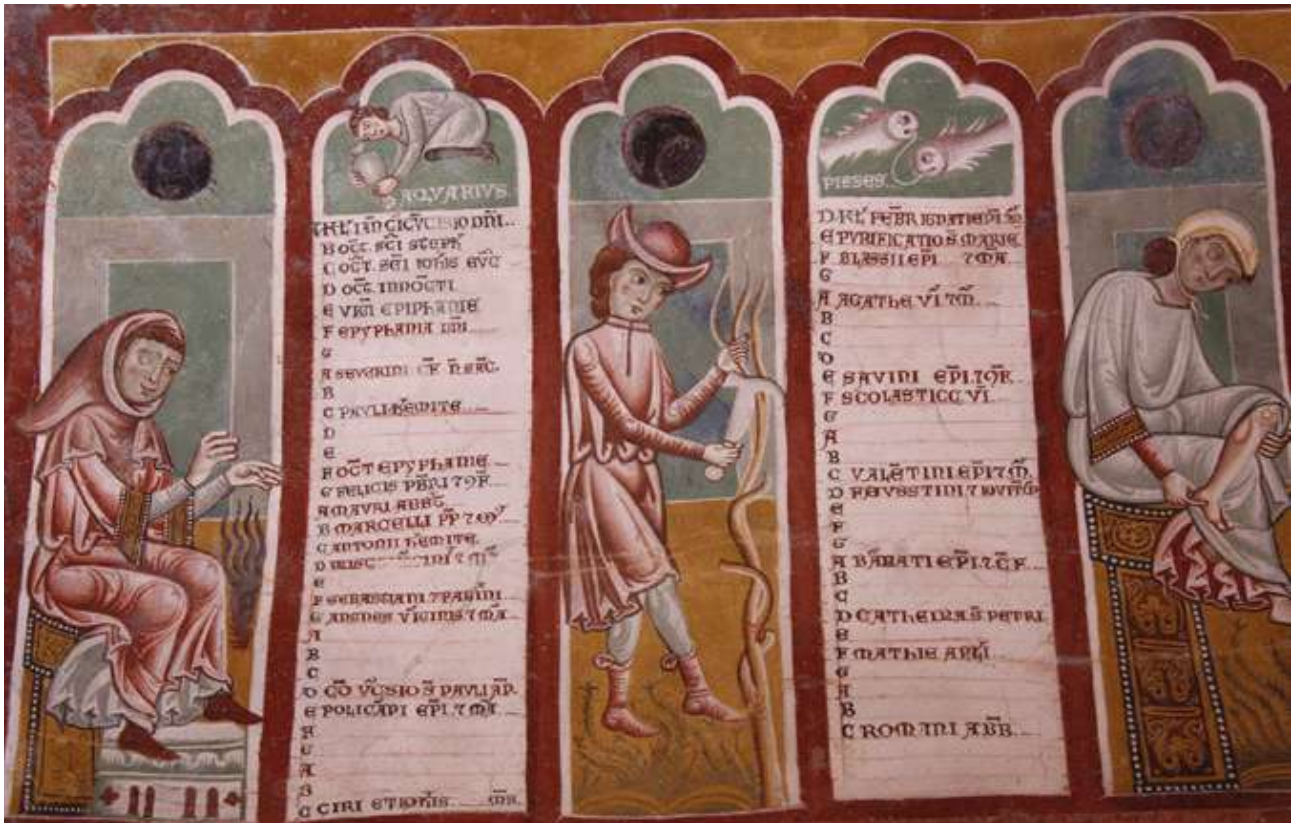 AQVARIVS
B OCT. SCI STEPH
C OCT. SCI IOHIS EVG
D OCT. INNOCTI
E VIGI EPIPHANIE
F EPYPHANIA DNI
G
A SEVERINI
B
C PAVLI HEMITE
D
E
F OCT EPYPHANIE
G FELICIS PBRI 7 9F
A MAVRI ABBT
B MARCELLI PP 7 M
C ANTONII HEMITE
D
E
F SEBASTIANI 7 FABINI
G ANGNES VIGINIS 7 MA
A
B
C
D CO VSIO S PAVLI AP
E POLICAPI EPI 7 MA
F
G
A
B
C CIRI ET IOHIS MR
PISSES
D KL FEBR IGNATII EPI
E PVRIFICATIO S MARIE
F BLASII EPI 7 MA
G
A AGATHE VI 7 M
B
C
D
E SAVINI EPI 7 9F
F SCOLASTICE VI
G
A
B
C VALETINI EPI 7 M
D FAVSSTINI 7 IOVITE
E
F
G
A BARBATI EPI 7 CF
B
C
D CATHEDRA S PETRI
E
F MATHIE APLI
G
A
B
C ROMANI ABB